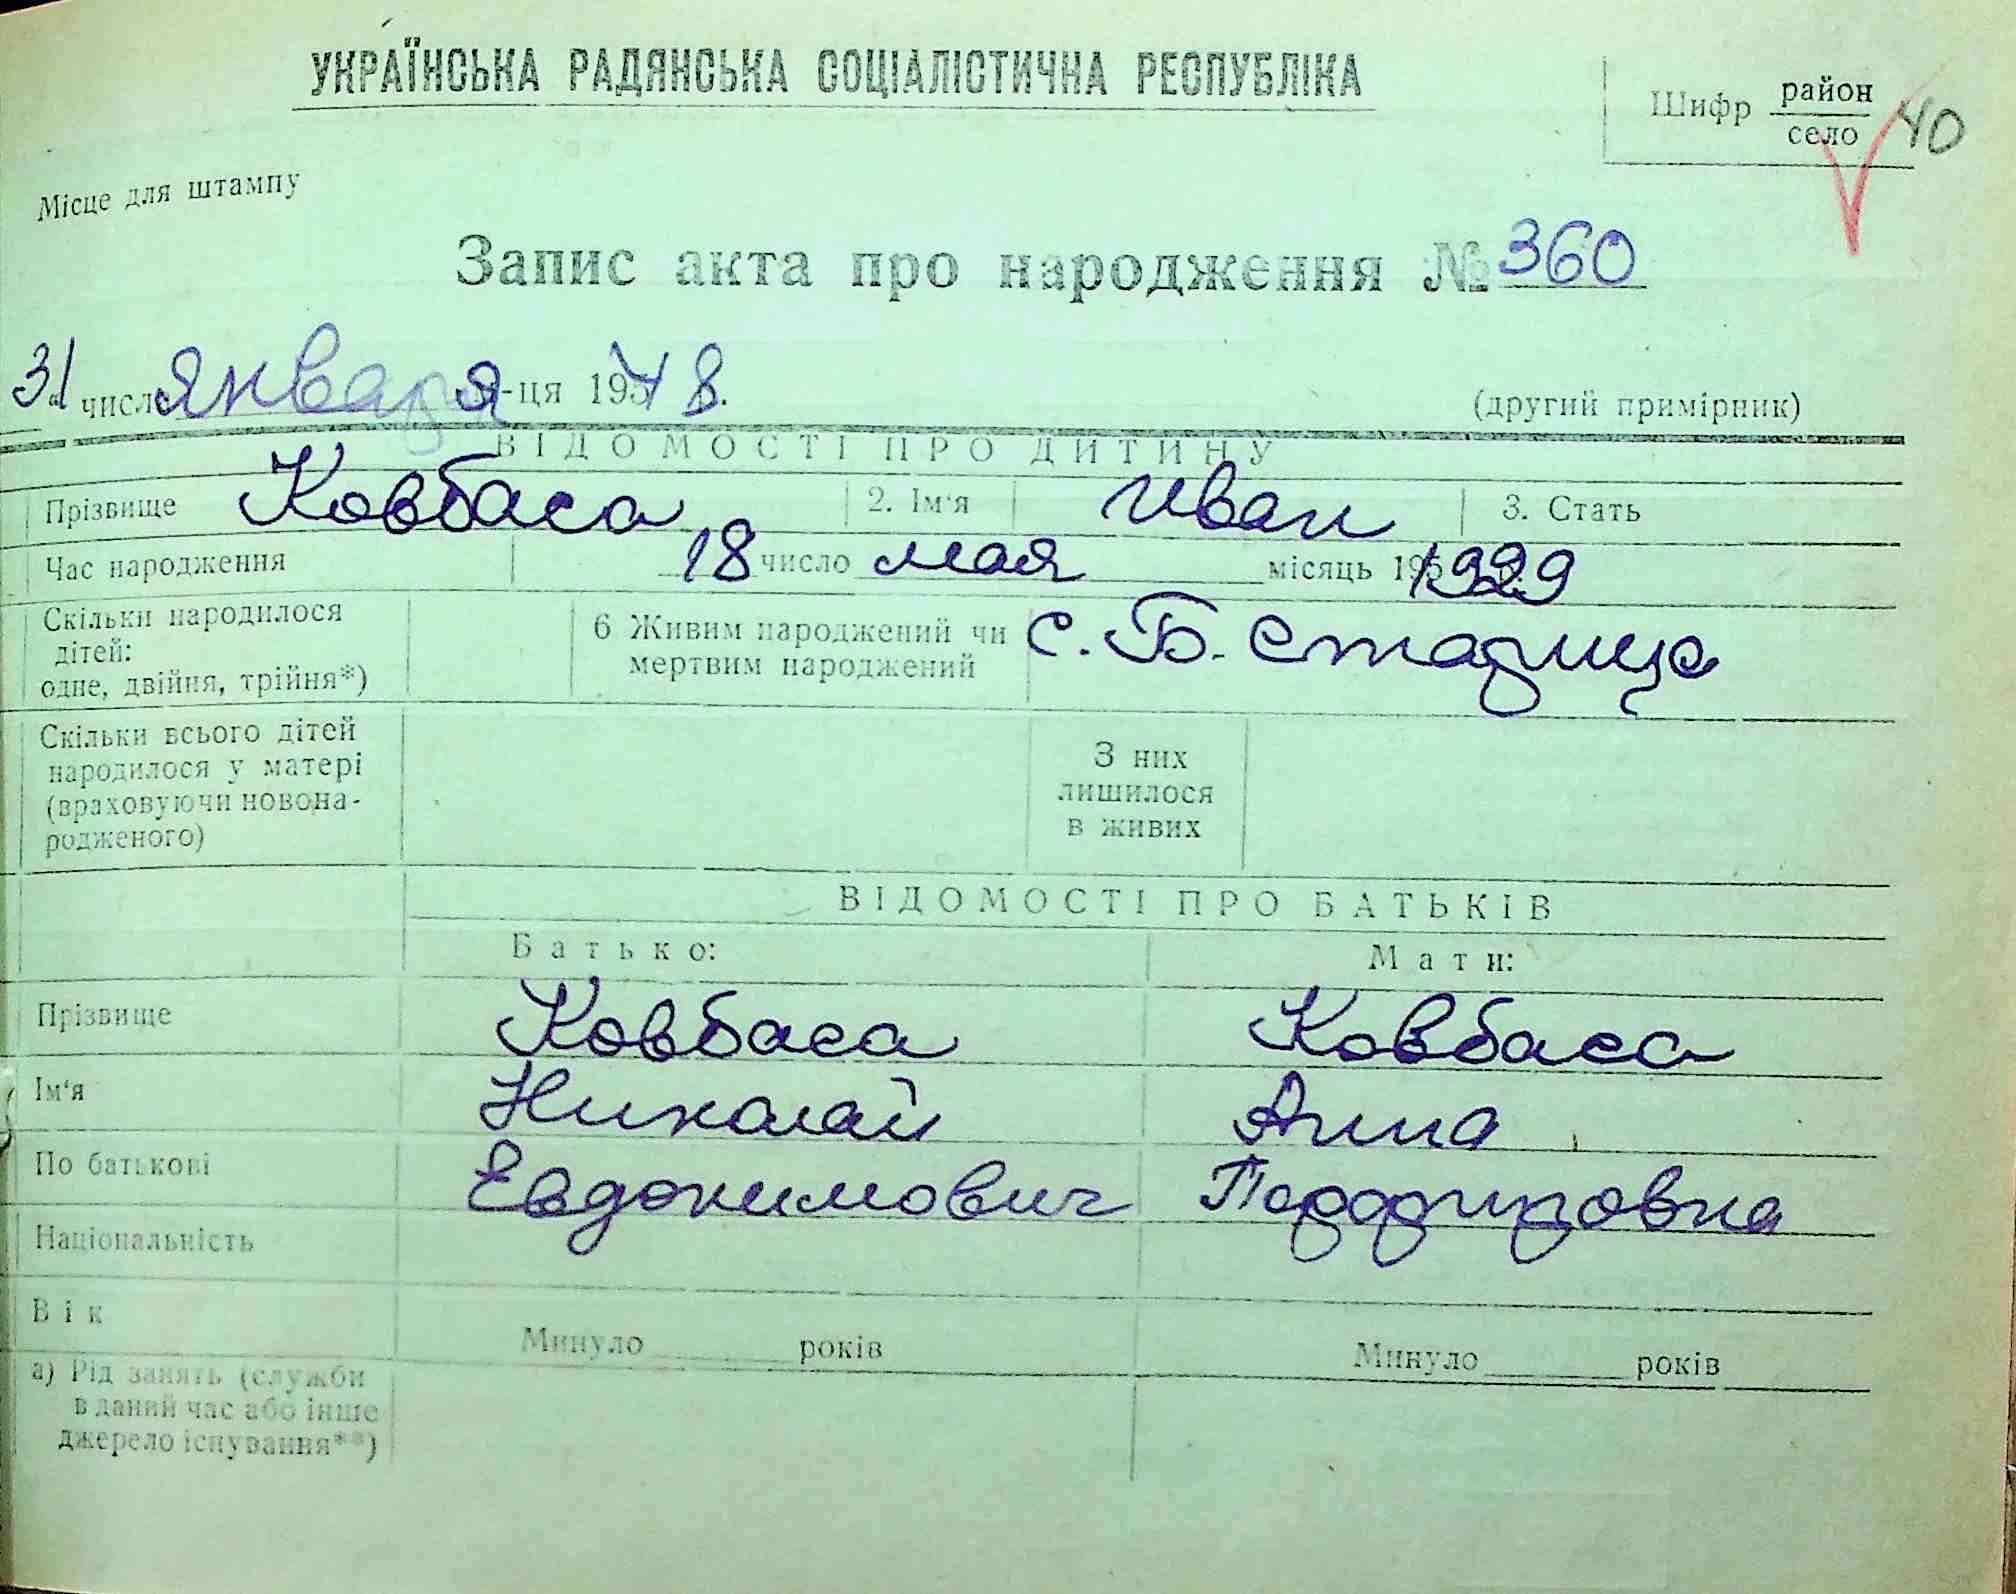 УКРАЇНСЬКА РАДЯНСЬКА СОЦІАЛІСТИЧНА РЕСПУБЛІКА
Шифр район
село 40
Місце для штампу
Запис акта про народження № 360
31 число января м-ця 1948.
(другий примірник)
ВІДОМОСТІ ПРО ДИТИНУ
Прізвище Ковбаса 2. Ім'я Иван 3. Стать
Час народження 18 число мая місяць 1929
Скільки народилося дітей: одне, двійня, трійня*)
6 Живим народжений чи мертвим народжений с. Б. Старица
Скільки всього дітей народилося у матері (враховуючи новонародженого)
З них лишилося в живих
ВІДОМОСТІ ПРО БАТЬКІВ
Батько: Мати:
Прізвище Ковбаса Ковбаса
Ім'я Николай Анна
По батькові Евдокимович
Національність
Вік Минуло років Минуло років
а) Рід занять (служби в даний час або інше джерело існування**)